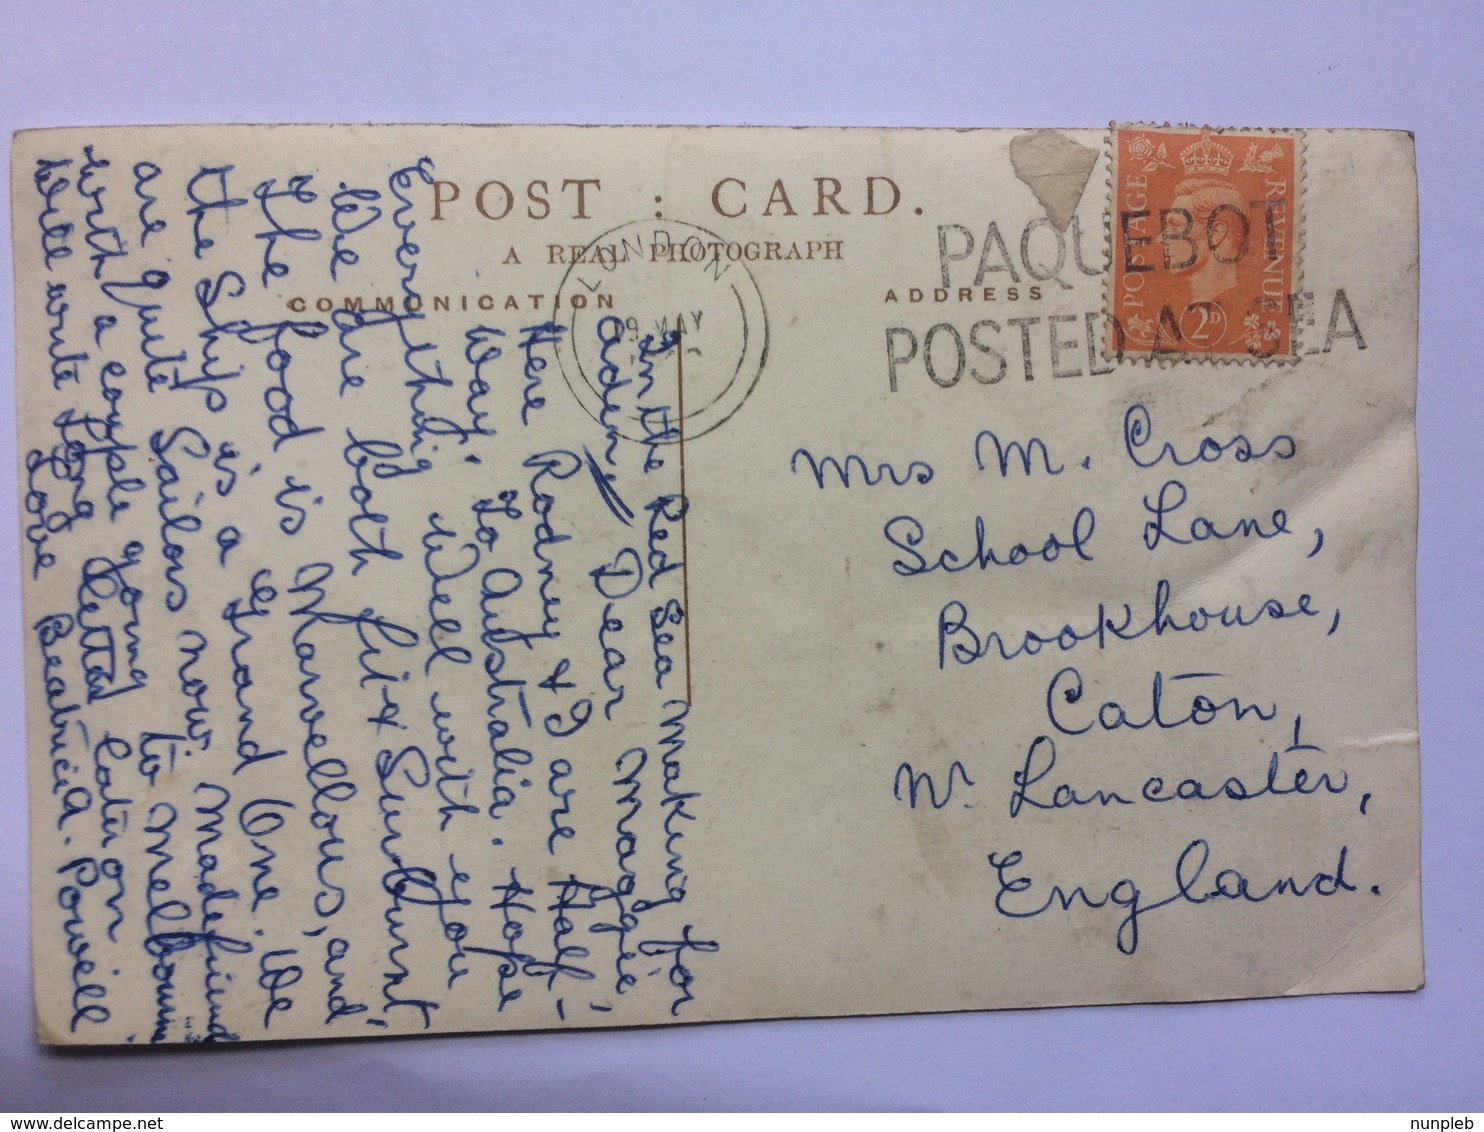 POST : CARD.
A REAL PHOTOGRAPH
COMMUNICATION
ADDRESS
LONDON
MAY
PAQUEBOT
POSTED AT SEA
POSTAGE
REVENUE
2D
In the Red Sea Making for
Aden,
Dear Maggie,
Here Rodney & I are Half-
Way, To Australia. Hope
Everything Well with you
We are both fit & Sunburnt,
The food is Marvellous, and
the Ship is a Grand One. We
are Quite Sailors now. Made friend
with a couple going to Melbourne
Will write Long Letter Later on
Love Beatrice A. Powell
Mrs M. Cross
School Lane,
Brookhouse,
Caton,
Nr Lancaster,
England.
nunpleb
www.delcampe.net